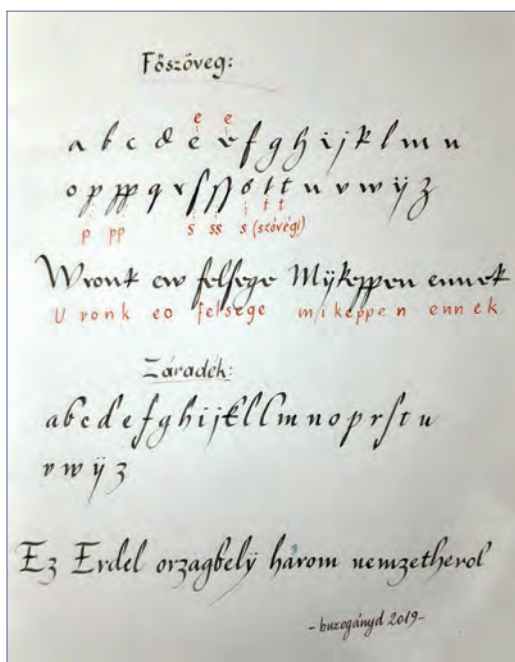 Főszöveg:
e e
a b c d e e f g h i j k l m u
o p pp q r ſ ſſ s t t u v w ÿ z
p pp s ss s (szóvégi) t t
Wronk ew felſege Mÿkeppen ennek
U r o n k e o f e l s e g e m i k e p p e n e n n e k
Záradék:
a b c d e f g h i j k l l m n o p r ſ t u
v w ÿ z
Ez Erdel orzagbelÿ három nemzetherol
- buzogányd 2019 -